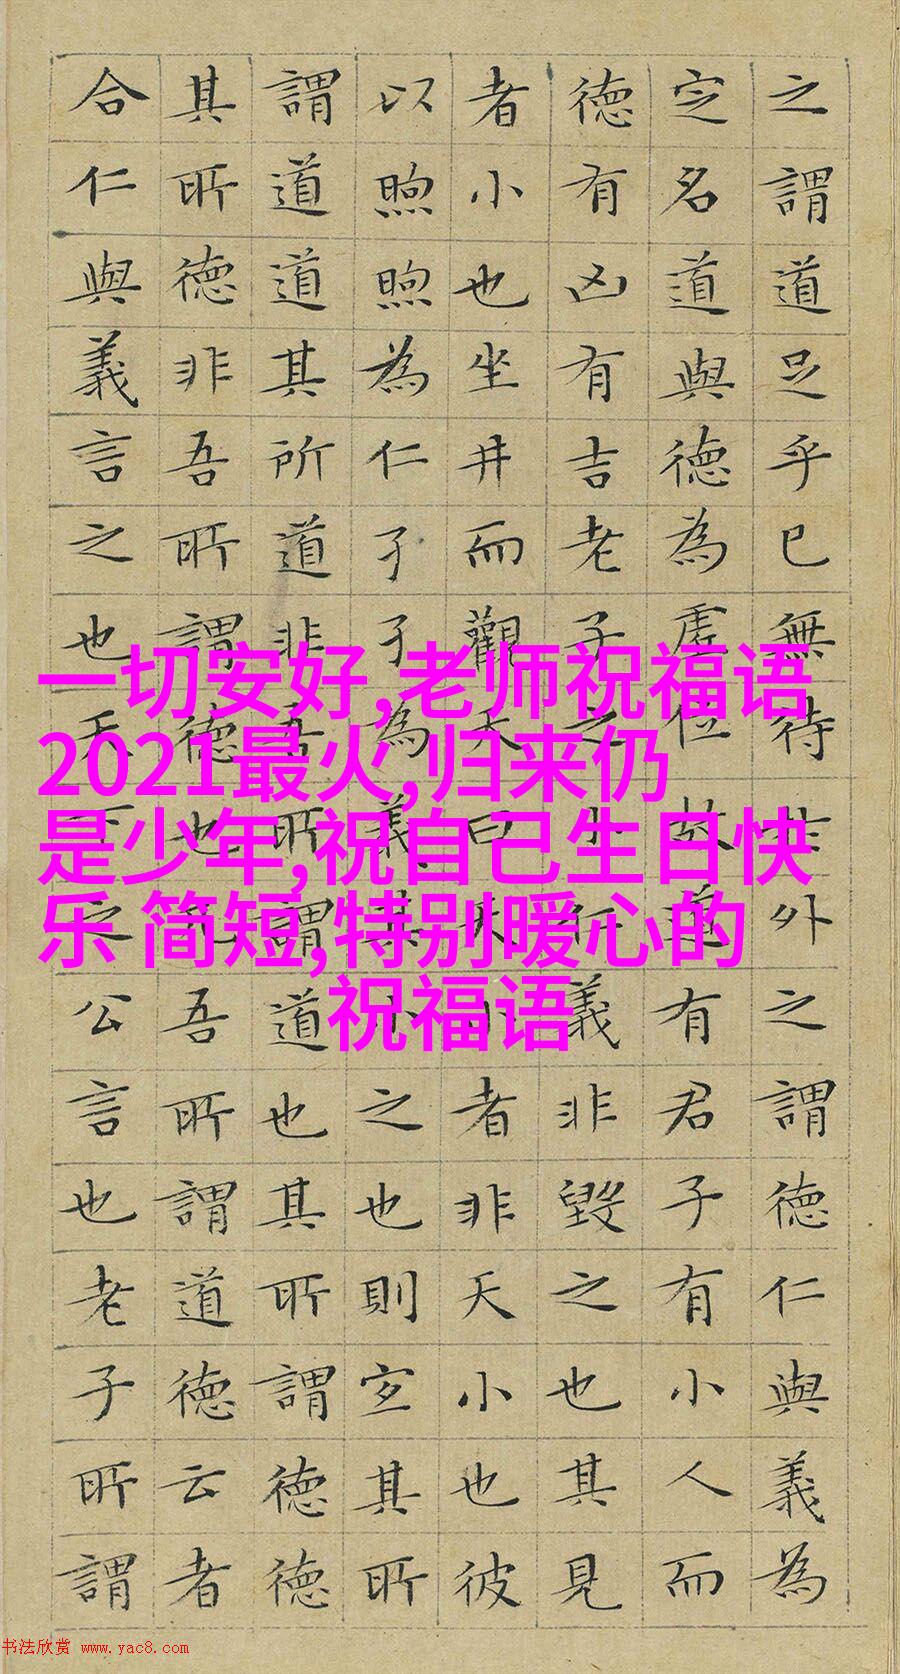 之謂道足乎已無待於外之謂德仁與義為
定名道與德為虛位故道有君子有小人而
德有凶有吉老子之小仁義非毀之也其見
者小也坐井而觀天曰天小者非天小也彼
以煦煦為仁孑孑為義其小之也則宜其所
謂道道其所道非吾所謂道也其所謂德德
其所德非吾所謂德也凡吾所謂道德云者
合仁與義言之也天下之公言也老子所謂
一切安好,老师祝福语
2021最火,归来仍
是少年,祝自己生日快
乐 简短,特别暖心的
祝福语
书法欣赏 www.yac8.com